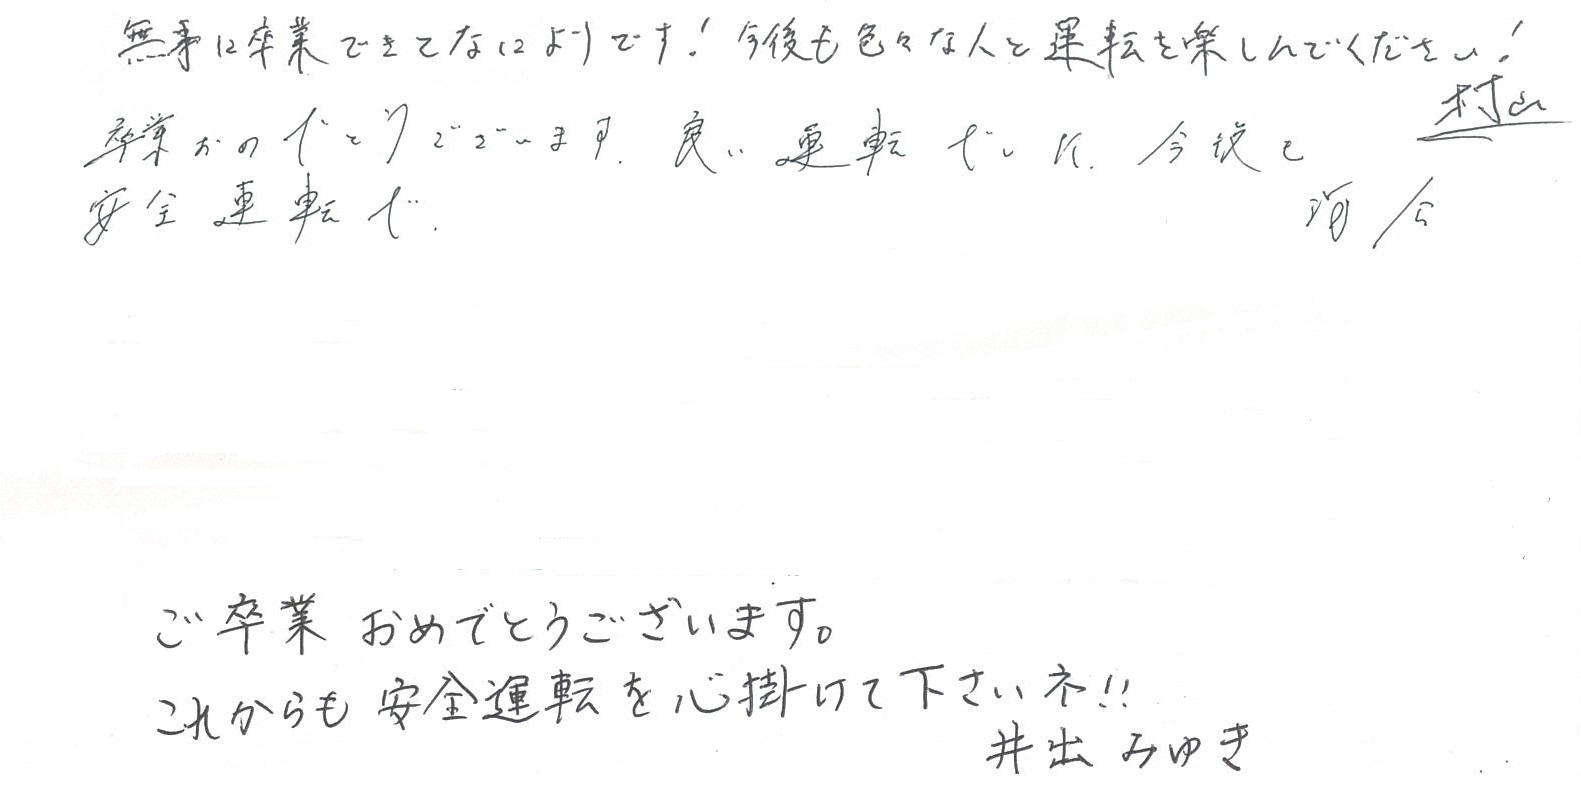 無事に卒業できてなによりです！今後も色々な人と運転を楽しんでください！
村山
卒業おめでとうございます。良い運転でした。今後も
安全運転で。
河合
ご卒業おめでとうございます。
これからも安全運転を心掛けて下さいネ!!
井出みゆき